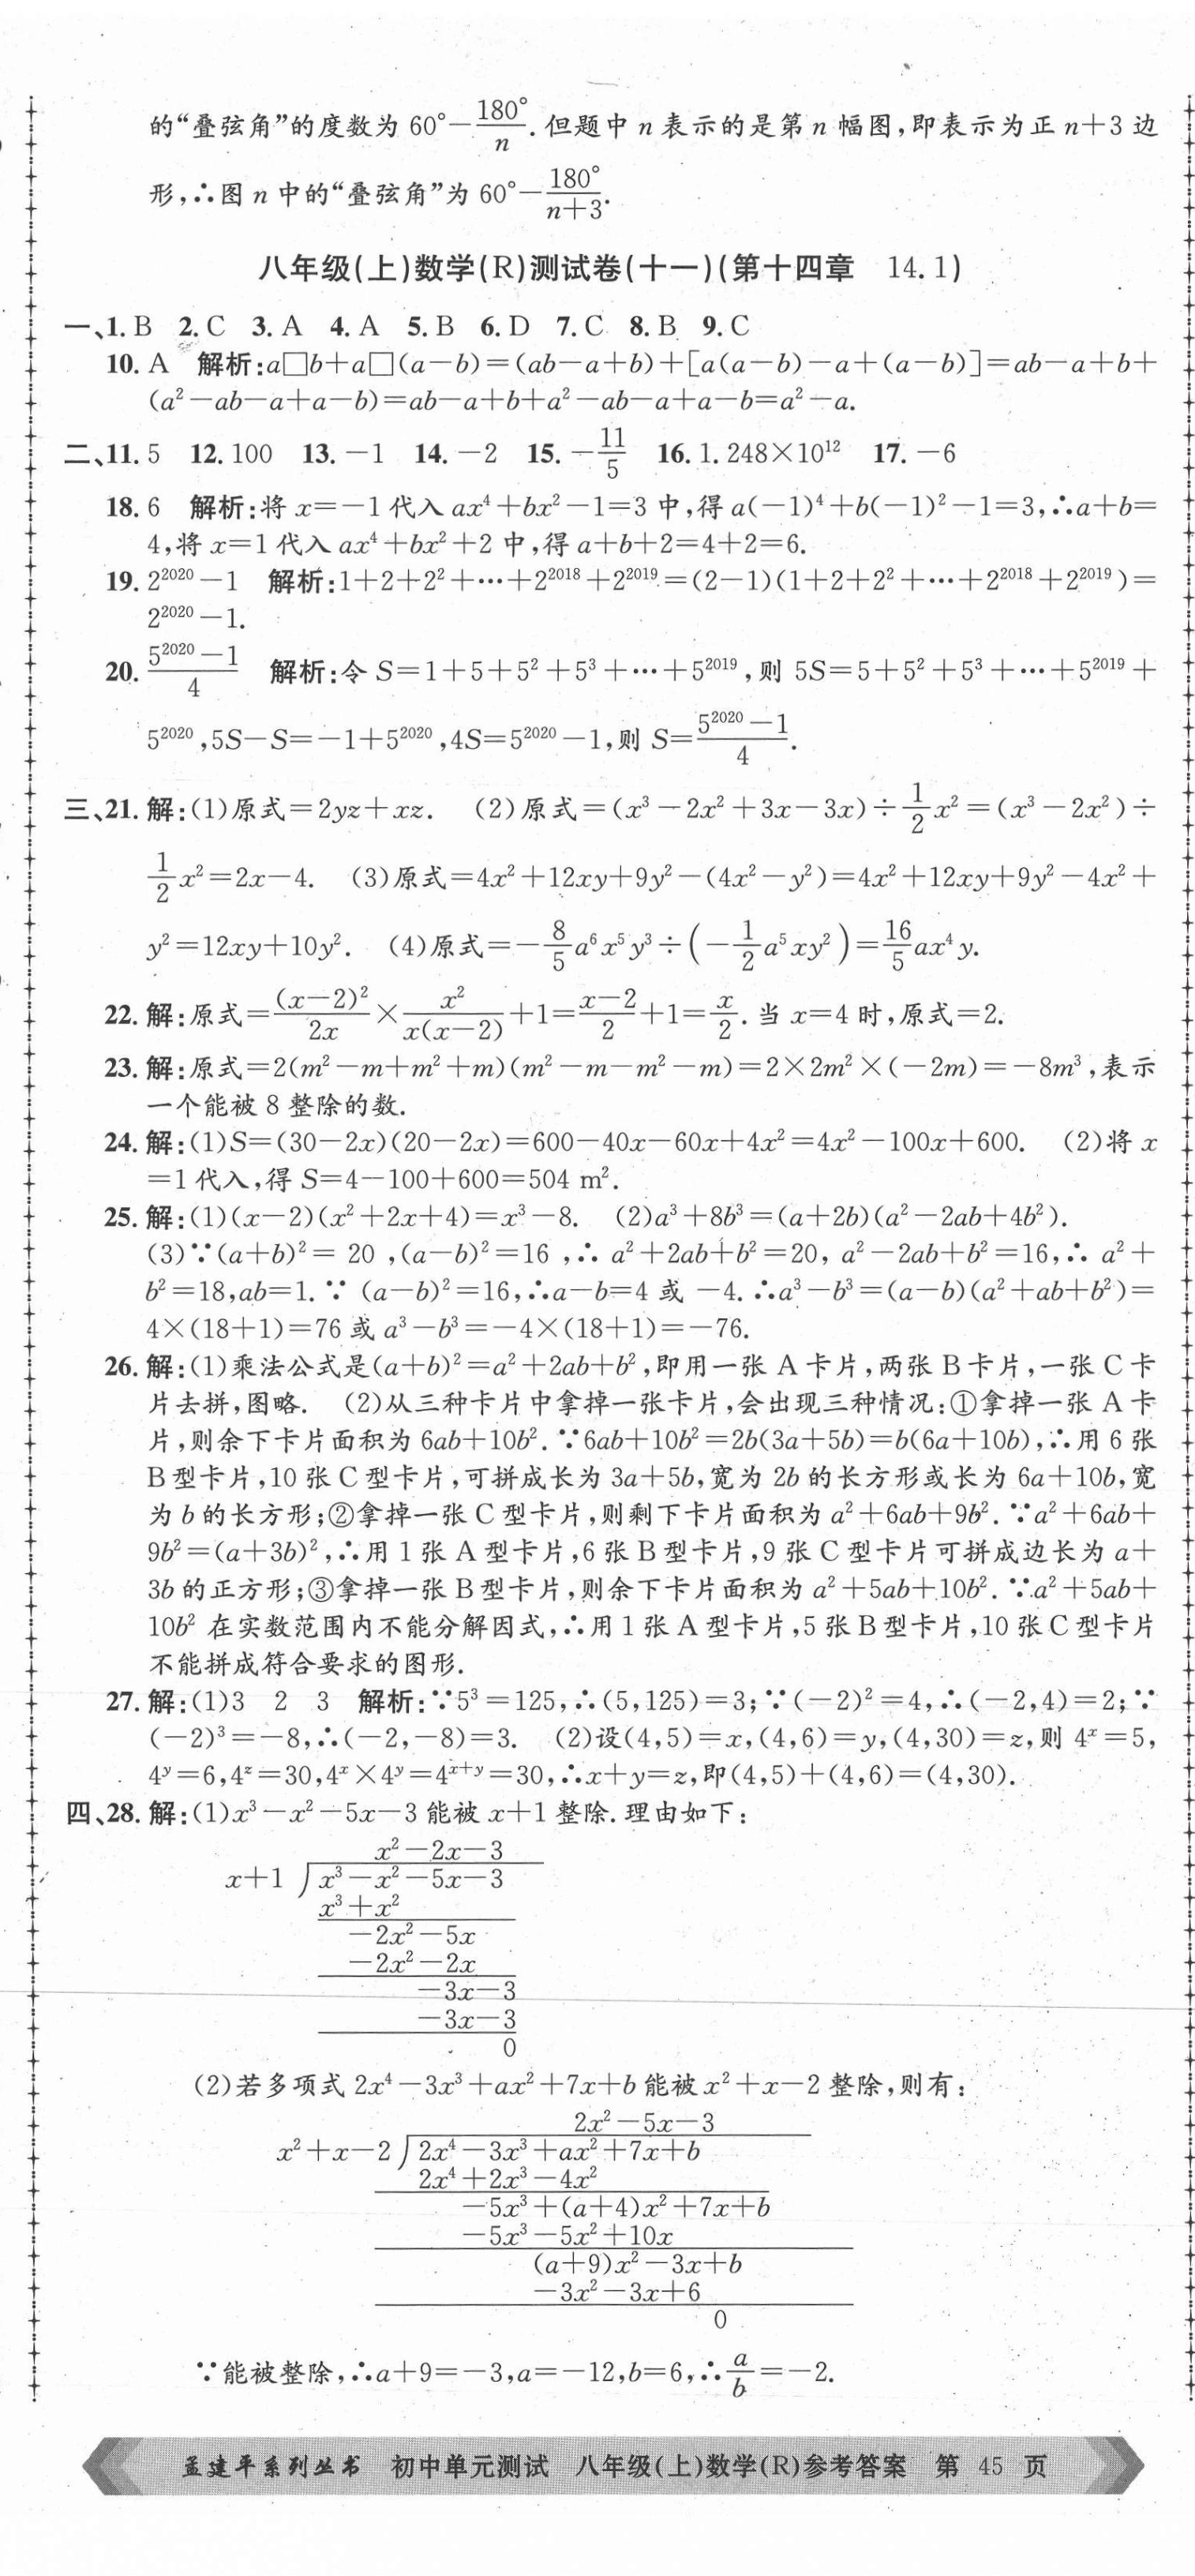 的“叠弦角”的度数为 60°－180°/n.但题中 n 表示的是第 n 幅图,即表示为正 n＋3 边
形,∴图 n 中的“叠弦角”为 60°－180°/(n＋3).
八年级(上)数学(R)测试卷(十一)(第十四章 14.1)
一、1. B 2. C 3. A 4. A 5. B 6. D 7. C 8. B 9. C
10. A 解析:a□b＋a□(a－b)＝(ab－a＋b)＋[a(a－b)－a＋(a－b)]＝ab－a＋b＋
(a²－ab－a＋a－b)＝ab－a＋b＋a²－ab－a＋a－b＝a²－a.
二、11. 5 12. 100 13. －1 14. －2 15. －11/5 16. 1.248×10¹² 17. －6
18. 6 解析:将 x＝－1 代入 ax⁴＋bx²－1＝3 中,得 a(－1)⁴＋b(－1)²－1＝3,∴a＋b＝
4,将 x＝1 代入 ax⁴＋bx²＋2 中,得 a＋b＋2＝4＋2＝6.
19. 2²⁰²⁰－1 解析:1＋2＋2²＋⋯＋2²⁰¹⁸＋2²⁰¹⁹＝(2－1)(1＋2＋2²＋⋯＋2²⁰¹⁸＋2²⁰¹⁹)＝
2²⁰²⁰－1.
20. (5²⁰²⁰－1)/4 解析:令 S＝1＋5＋5²＋5³＋⋯＋5²⁰¹⁹,则 5S＝5＋5²＋5³＋⋯＋5²⁰¹⁹＋
5²⁰²⁰,5S－S＝－1＋5²⁰²⁰,4S＝5²⁰²⁰－1,则 S＝(5²⁰²⁰－1)/4.
三、21. 解:(1)原式＝2yz＋xz. (2)原式＝(x³－2x²＋3x－3x)÷1/2 x²＝(x³－2x²)÷
1/2 x²＝2x－4. (3)原式＝4x²＋12xy＋9y²－(4x²－y²)＝4x²＋12xy＋9y²－4x²＋
y²＝12xy＋10y². (4)原式＝－8/5 a⁶x⁵y³÷(－1/2 a⁵xy²)＝16/5 ax⁴y.
22. 解:原式＝(x－2)²/2x×x²/x(x－2)＋1＝(x－2)/2＋1＝x/2.当 x＝4 时,原式＝2.
23. 解:原式＝2(m²－m＋m²＋m)(m²－m－m²－m)＝2×2m²×(－2m)＝－8m³,表示
一个能被 8 整除的数.
24. 解:(1)S＝(30－2x)(20－2x)＝600－40x－60x＋4x²＝4x²－100x＋600. (2)将 x
＝1 代入,得 S＝4－100＋600＝504 m².
25. 解:(1)(x－2)(x²＋2x＋4)＝x³－8. (2)a³＋8b³＝(a＋2b)(a²－2ab＋4b²).
(3)∵(a＋b)²＝ 20 ,(a－b)²＝16 ,∴ a²＋2ab＋b²＝20, a²－2ab＋b²＝16,∴ a²＋
b²＝18,ab＝1.∵ (a－b)²＝16,∴a－b＝4 或 －4.∴a³－b³＝(a－b)(a²＋ab＋b²)＝
4×(18＋1)＝76 或 a³－b³＝－4×(18＋1)＝－76.
26. 解:(1)乘法公式是(a＋b)²＝a²＋2ab＋b²,即用一张 A 卡片,两张 B 卡片,一张 C 卡
片去拼,图略. (2)从三种卡片中拿掉一张卡片,会出现三种情况:①拿掉一张 A 卡
片,则余下卡片面积为 6ab＋10b².∵6ab＋10b²＝2b(3a＋5b)＝b(6a＋10b),∴用 6 张
B 型卡片,10 张 C 型卡片,可拼成长为 3a＋5b,宽为 2b 的长方形或长为 6a＋10b,宽
为 b 的长方形;②拿掉一张 C 型卡片,则剩下卡片面积为 a²＋6ab＋9b².∵a²＋6ab＋
9b²＝(a＋3b)²,∴用 1 张 A 型卡片,6 张 B 型卡片,9 张 C 型卡片可拼成边长为 a＋
3b 的正方形;③拿掉一张 B 型卡片,则余下卡片面积为 a²＋5ab＋10b².∵a²＋5ab＋
10b² 在实数范围内不能分解因式,∴用 1 张 A 型卡片,5 张 B 型卡片,10 张 C 型卡片
不能拼成符合要求的图形.
27. 解:(1)3 2 3 解析:∵5³＝125,∴(5,125)＝3;∵(－2)²＝4,∴(－2,4)＝2;∵
(－2)³＝－8,∴(－2,－8)＝3. (2)设(4,5)＝x,(4,6)＝y,(4,30)＝z,则 4ˣ＝5,
4ʸ＝6,4ᶻ＝30,4ˣ×4ʸ＝4ˣ⁺ʸ＝30,∴x＋y＝z,即(4,5)＋(4,6)＝(4,30).
四、28. 解:(1)x³－x²－5x－3 能被 x＋1 整除.理由如下:
x²－2x－3
x＋1 ) x³－x²－5x－3
x³＋x²
－2x²－5x
－2x²－2x
－3x－3
－3x－3
0
(2)若多项式 2x⁴－3x³＋ax²＋7x＋b 能被 x²＋x－2 整除,则有:
2x²－5x－3
x²＋x－2 ) 2x⁴－3x³＋ax²＋7x＋b
2x⁴＋2x³－4x²
－5x³＋(a＋4)x²＋7x＋b
－5x³－5x²＋10x
(a＋9)x²－3x＋b
－3x²－3x＋6
0
∵能被整除,∴a＋9＝－3,a＝－12,b＝6,∴a/b＝－2.
孟建平系列丛书 初中单元测试 八年级(上)数学(R)参考答案 第 45 页